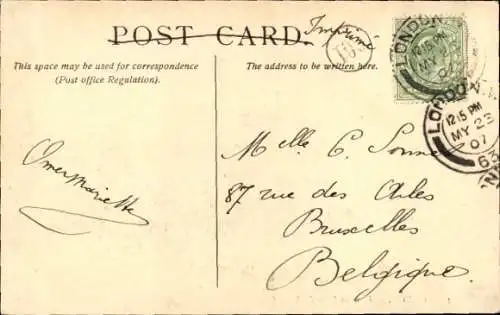 POST CARD.
Imprimé
This space may be used for correspondence
(Post office Regulation).
The address to be written here.
LONDON
12.15 PM
MY
07
LONDON. W.
12.15 PM
MY 23
07
63
Melle C.
87 rue des
Bruxelles
Belgique.